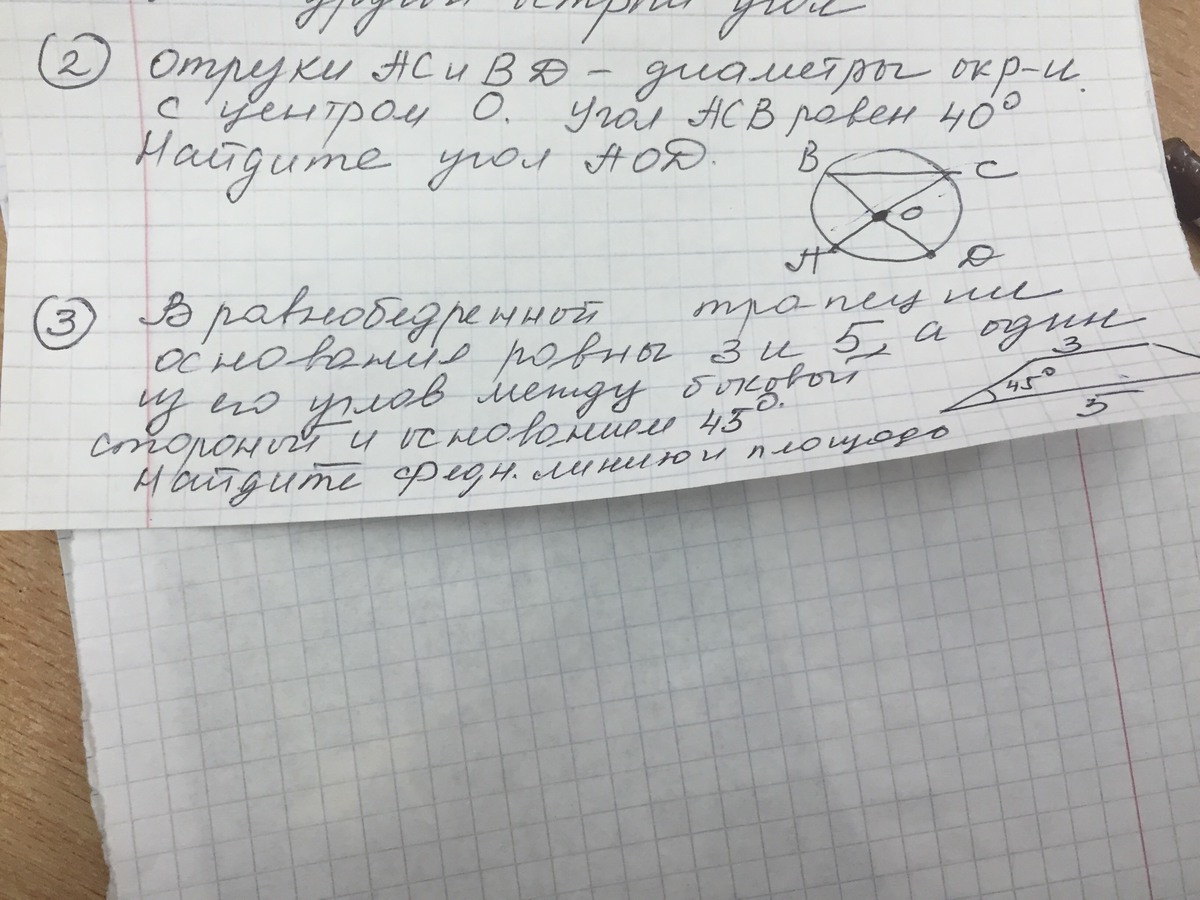 другой острый угол
2 Отрузки AC и BD – диаметры окр-и.
с центром O. Угол ACB равен 40°
Найдите угол AOD.
B C
O
A D
3 В равнобедренной трапеции
основания равны 3 и 5, а один
из его углов между боковой
стороный и основанием 45°.
Найдите средн. линию и площадь
3
45°
5